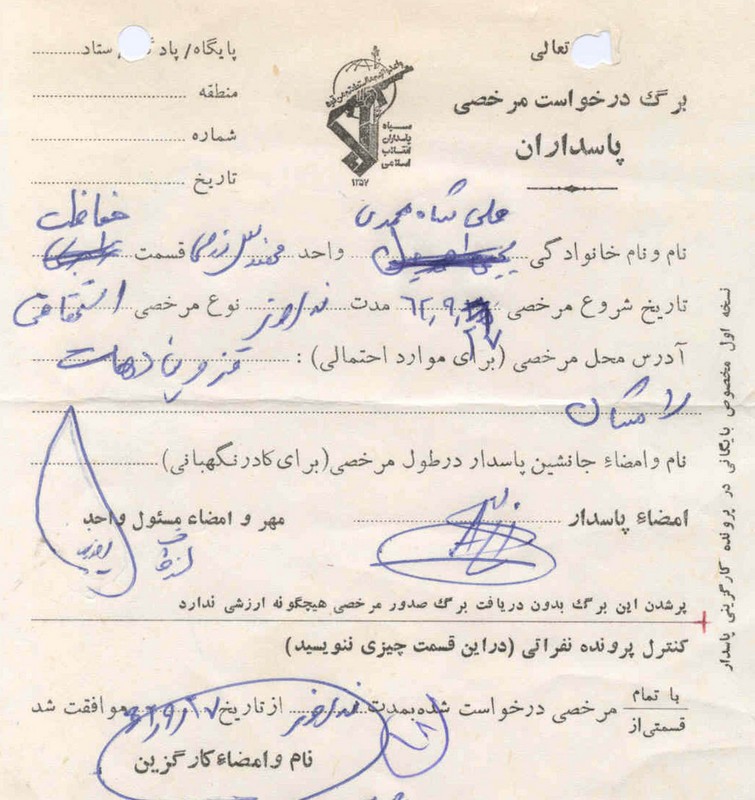 تعالی
برگ درخواست مرخصی
پاسداران
پایگاه/ پاد ستاد
منطقه
شماره
تاریخ
سپاه
پاسداران
انقلاب
اسلامی
۱۳۵۷
علی شاه محمدی حفاظت
نام و نام خانوادگی واحد مهندس رزمی قسمت
تاریخ شروع مرخصی ۶۲٫۹٫ مدت نوع مرخصی استحقاقی
۱۷
آدرس محل مرخصی (برای موارد احتمالی) : قزوین دهات
رامشان
نام و امضاء جانشین پاسدار درطول مرخصی(برای کادر نگهبانی)
امضاء پاسدار مهر و امضاء مسئول واحد
پرشدن این برگ بدون دریافت برگ صدور مرخصی هیچگونه ارزشی ندارد
کنترل پرونده نفراتی (در این قسمت چیزی ننویسید)
با تمام
قسمتی از مرخصی درخواست شده بمدت از تاریخ موافقت شد
نام و امضاء کارگزین
نسخه اول مخصوص بایگانی در پرونده کارگزینی پاسدار